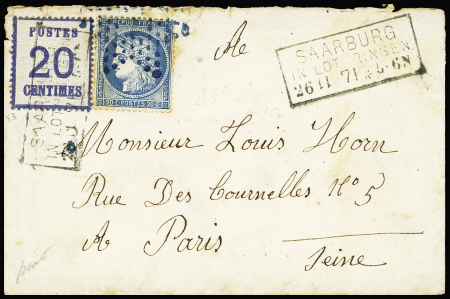 POSTES
20
CENTIMES
20 C. POSTES 20 C.
A
SAARBURG
IN LOTHRINGEN
26 11 71
SAAR
IN LOT
Monsieur Louis Horn
Rue Des Tournelles N° 5
A Paris
Seine